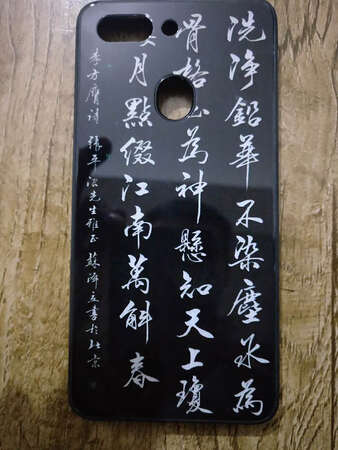 洗净鉛華不染塵氷為
骨格玉為神懸知天上瓊
月點綴江南萬斛春
李方膺詩 張平 先生雅正 書於北京